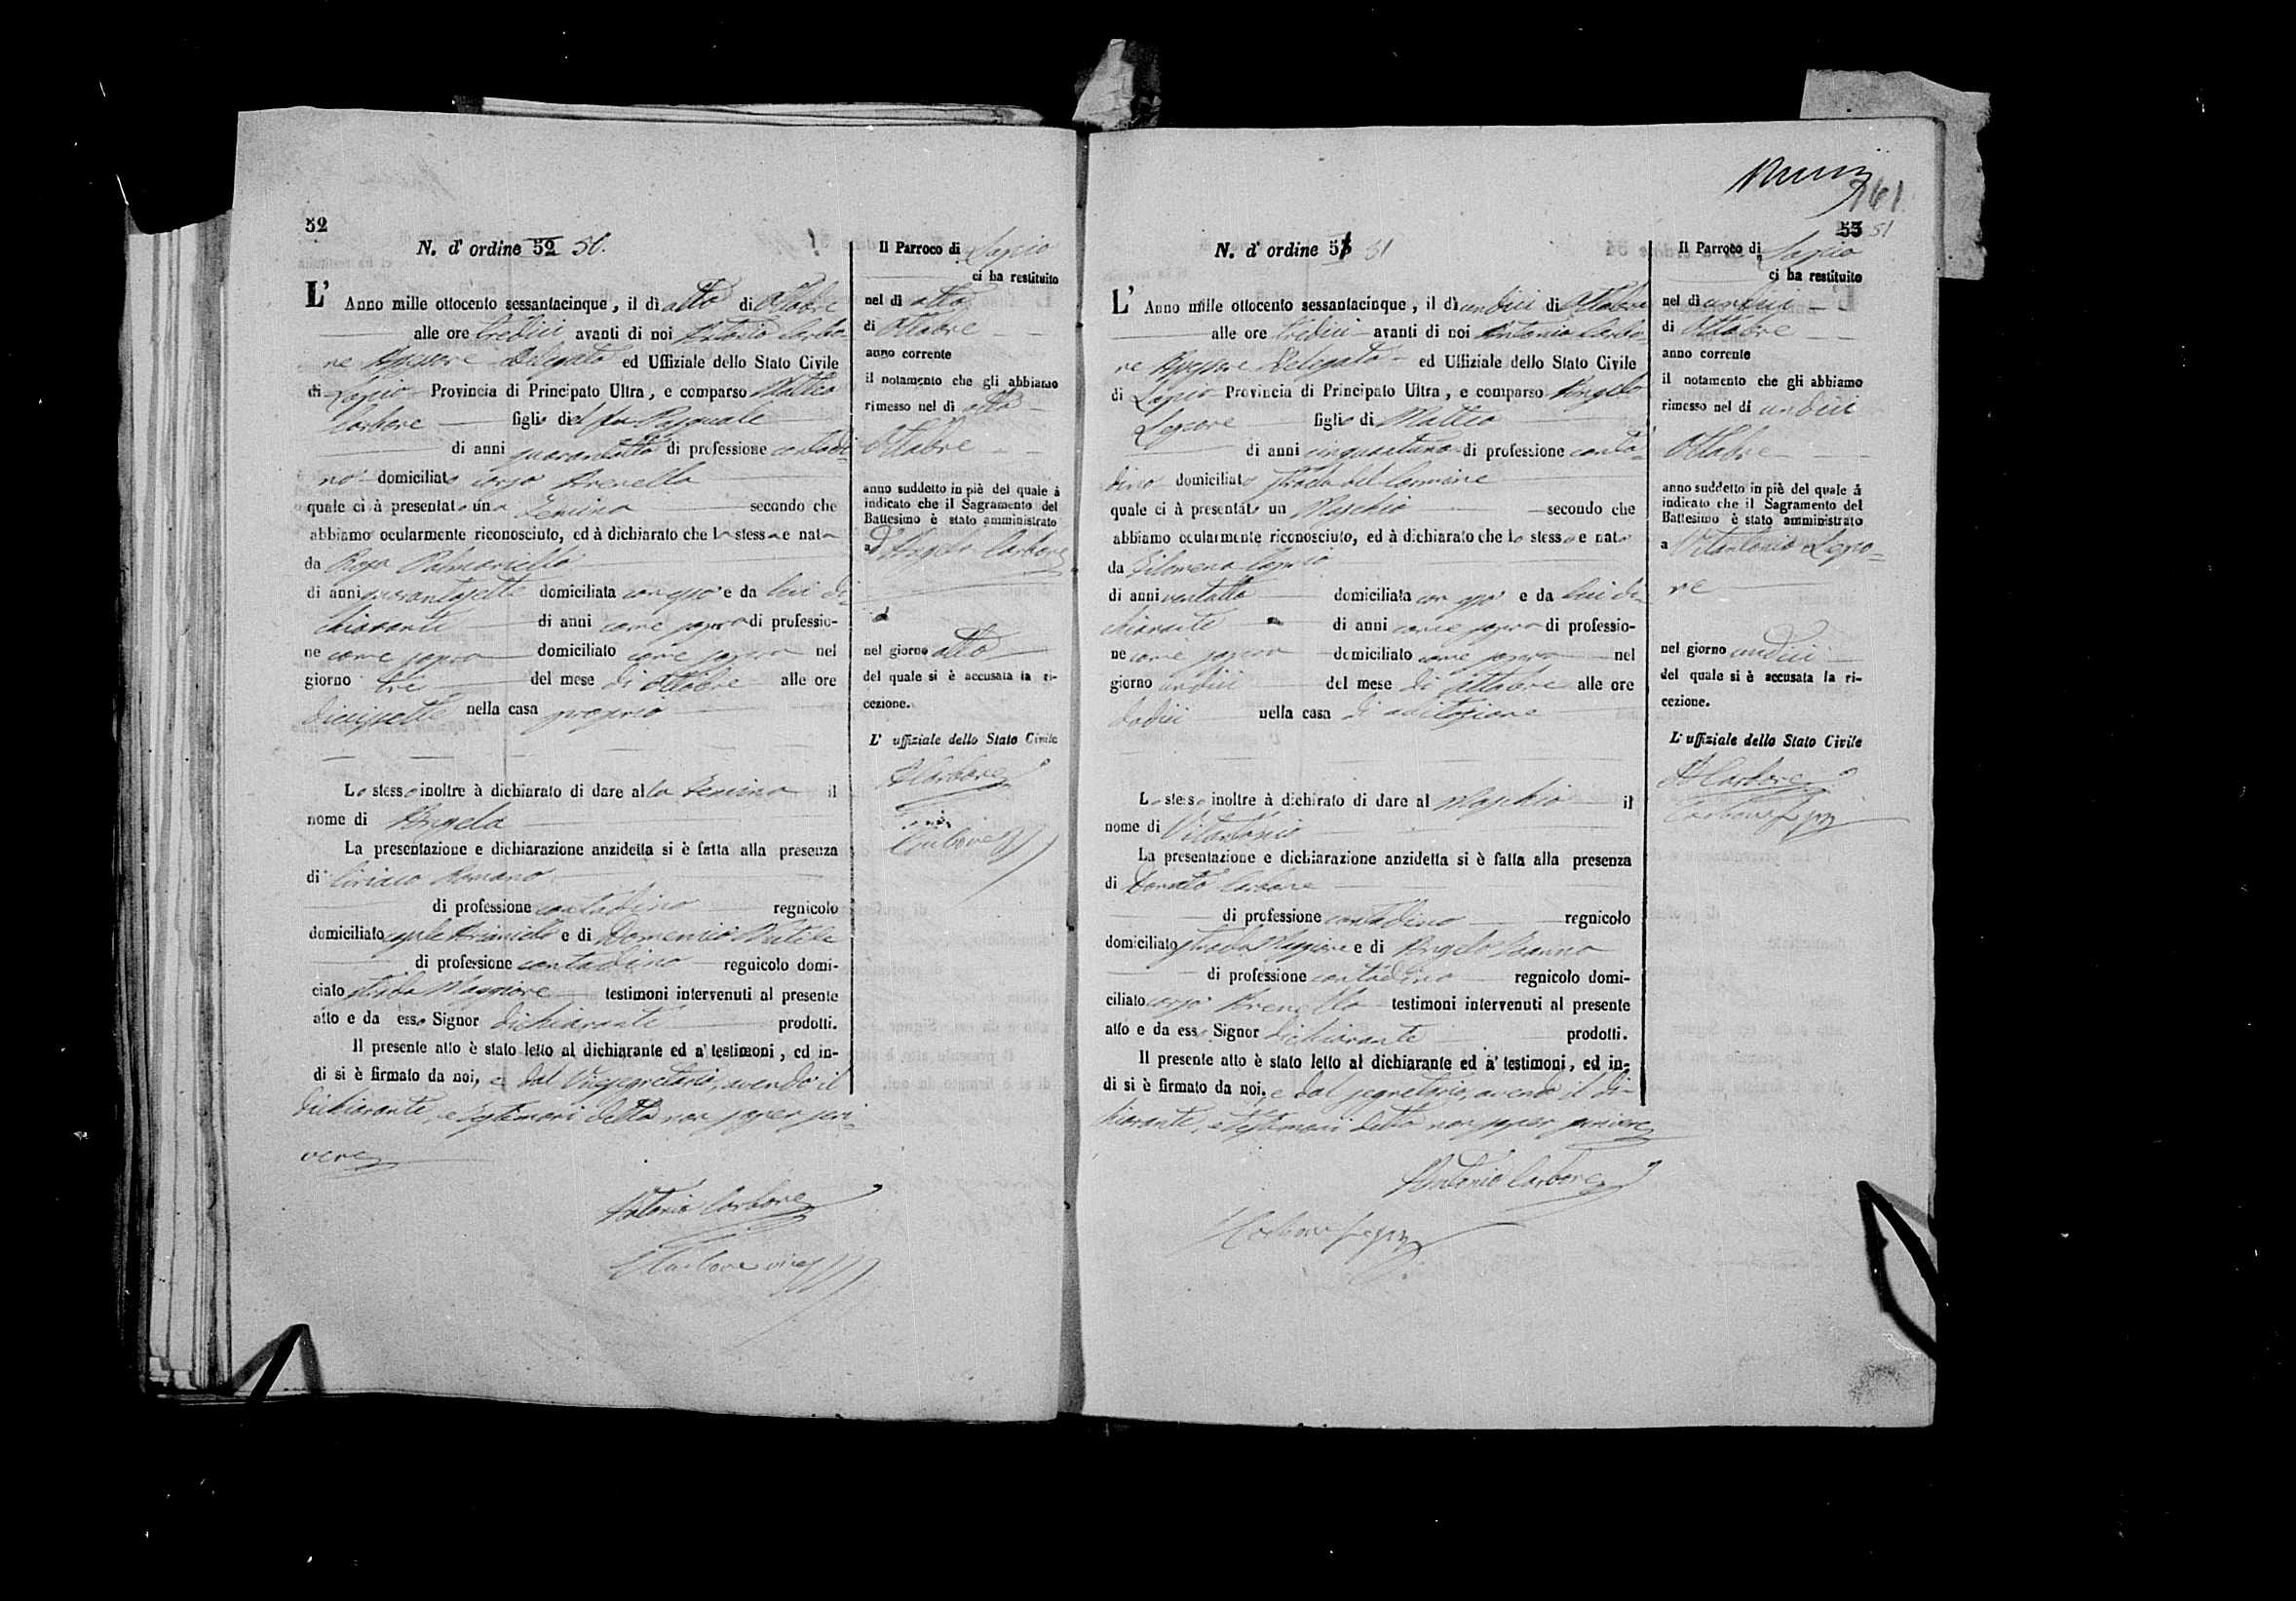 52
N. d' ordine 52 50.
L' Anno mille ottocento sessantacinque, il dì otto di Ottobre
alle ore tredici avanti di noi Antonio Carbo-
ne Assessore Delegato ed Uffiziale dello Stato Civile
di Lapio Provincia di Principato Ultra, e comparso Matteo
Carbone figlio del fu Pasquale
di anni quarantotto di professione contadi-
no domiciliato corso Arenella
quale ci à presentato una Femina secondo che
abbiamo ocularmente riconosciuto, ed à dichiarato che la stessa e nata
da Rosa Palmariello
di anni quarantasette domiciliata con esso e da lui di-
chiarante di anni come sopra di professio-
ne come sopra domiciliato come sopra nel
giorno tre del mese di Ottobre alle ore
diecissette nella casa propria
Lo stesso inoltre à dichiarato di dare alla Femina il
nome di Angela
La presentazione e dichiarazione anzidetta si è fatta alla presenza
di Ciriaco Romano
di professione contadino regnicolo
domiciliato e di Domenico
di professione contadino regnicolo domi-
ciato strada Maggiore testimoni intervenuti al presente
atto e da esso Signor dichiarante prodotti.
Il presente atto è stato letto al dichiarante ed a' testimoni, ed in-
di si è firmato da noi, e dal Vicesegretario, avendo il
dichiarante, e testimoni detto non saper scri-
vere
Antonio Carbone
Carbone
Il Parroco di Lapio
ci ha restituito
nel dì otto
di Ottobre
anno corrente
il notamento che gli abbiamo
rimesso nel dì otto
Ottobre
anno suddetto in piè del quale à
indicato che il Sagramento del
Battesimo è stato amministrato
a Angela Carbone
nel giorno otto
del quale si è accusata la ri-
cezione.
L' uffiziale dello Stato Civile
A Carbone
Carbone
161
53 51
N. d' ordine 53 51
L' Anno mille ottocento sessantacinque, il dì undici di Ottobre
alle ore tredici avanti di noi Antonio Carbo-
ne Assessore Delegato ed Uffiziale dello Stato Civile
di Lapio Provincia di Principato Ultra, e comparso Angelo
Lepore figlio di Matteo
di anni cinquantuno di professione conta-
dino domiciliato strada del Carmine
quale ci à presentato un Maschio secondo che
abbiamo ocularmente riconosciuto, ed à dichiarato che lo stesso e nato
da Filomena
di anni ventotto domiciliata con esso e da lui di-
chiarante di anni come sopra di professio-
ne come sopra domiciliato come sopra nel
giorno undici del mese di Ottobre alle ore
dodici nella casa di abitazione
Lo stesso inoltre à dichirato di dare al Maschio il
nome di Vitantonio
La presentazione e dichiarazione anzidetta si è fatta alla presenza
di Donato Carbone
di professione contadino regnicolo
domiciliato strada Maggiore e di Angelo
di professione contadino regnicolo domi-
ciliato corso Arenella testimoni intervenuti al presente
atto e da esso Signor dichiarante prodotti.
Il presente atto è stato letto al dichiarante ed a' testimoni, ed in-
di si è firmato da noi, e dal segretario, avendo il di-
chiarante, e testimoni detto non saper scrivere
Antonio Carbone
Carbone Segr
Il Parroco di Lapio
ci ha restituito
nel dì undici
di Ottobre
anno corrente
il notamento che gli abbiamo
rimesso nel dì undici
Ottobre
anno suddetto in piè del quale à
indicato che il Sagramento del
Battesimo è stato amministrato
a Vitantonio Lepo-
re
nel giorno undici
del quale si è accusata la ri-
cezione.
L' uffiziale dello Stato Civile
A Carbone
Carbone Segr